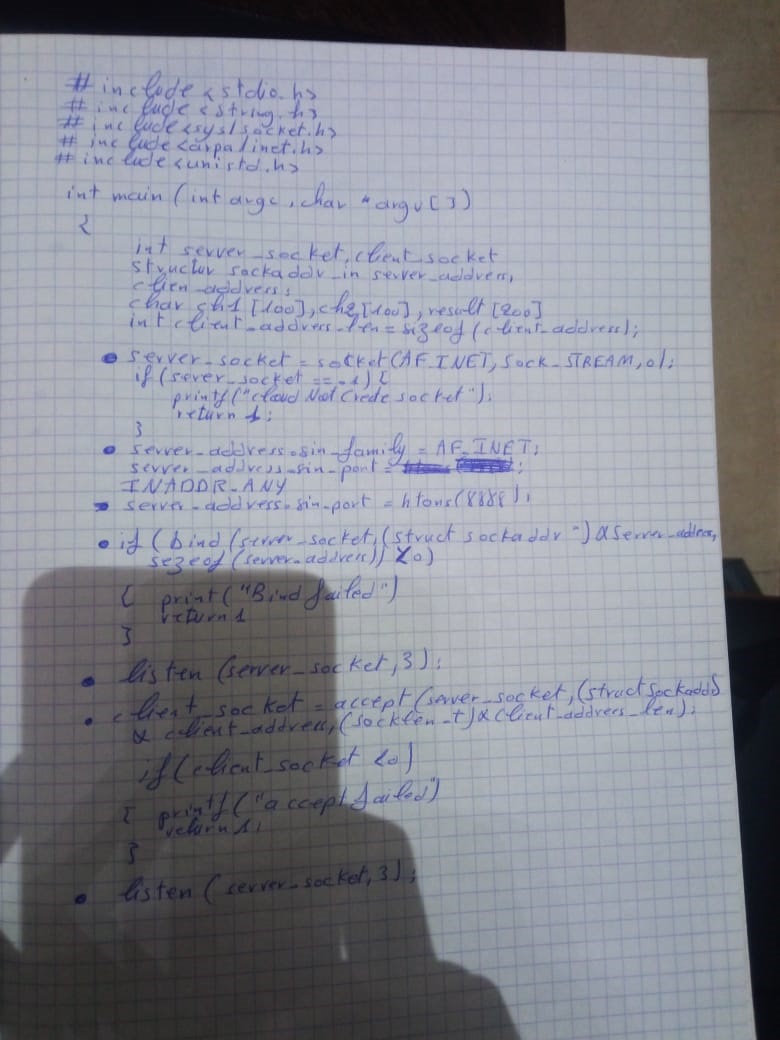 # include <stdio.h>
# include <string.h>
# include <sys/socket.h>
# include <arpa/inet.h>
# include <unistd.h>
int main (int argc, char *argv[])
{
int server_socket, client_socket
structor sockaddr_in server_address,
clien_address;
char ch1 [100], ch2 [100], result [200]
int client_address_len = sizeof (client_address);
• server_socket = socket (AF_INET, Sock_STREAM, 0);
if (sever_socket == -1) {
printf ("cloud Not Crede socket");
return 1;
}
• server_address.sin_family = AF_INET;
server_address.sin_port = ;
INADDR_ANY
• server_address.sin_port = htons (8888);
• if (bind (server_socket, (struct sockaddr *) & server_address,
sezeof (server_address)) <0)
{ print ("Bind failed")
return 1
}
• listen (server_socket, 3);
• client_socket = accept (server_socket, (struct sockaddr
& client_address, (socklen_t) & client_address_len);
if (client_socket <0)
{ printf ("accept failed")
return 1;
}
• listen (server_socket, 3);